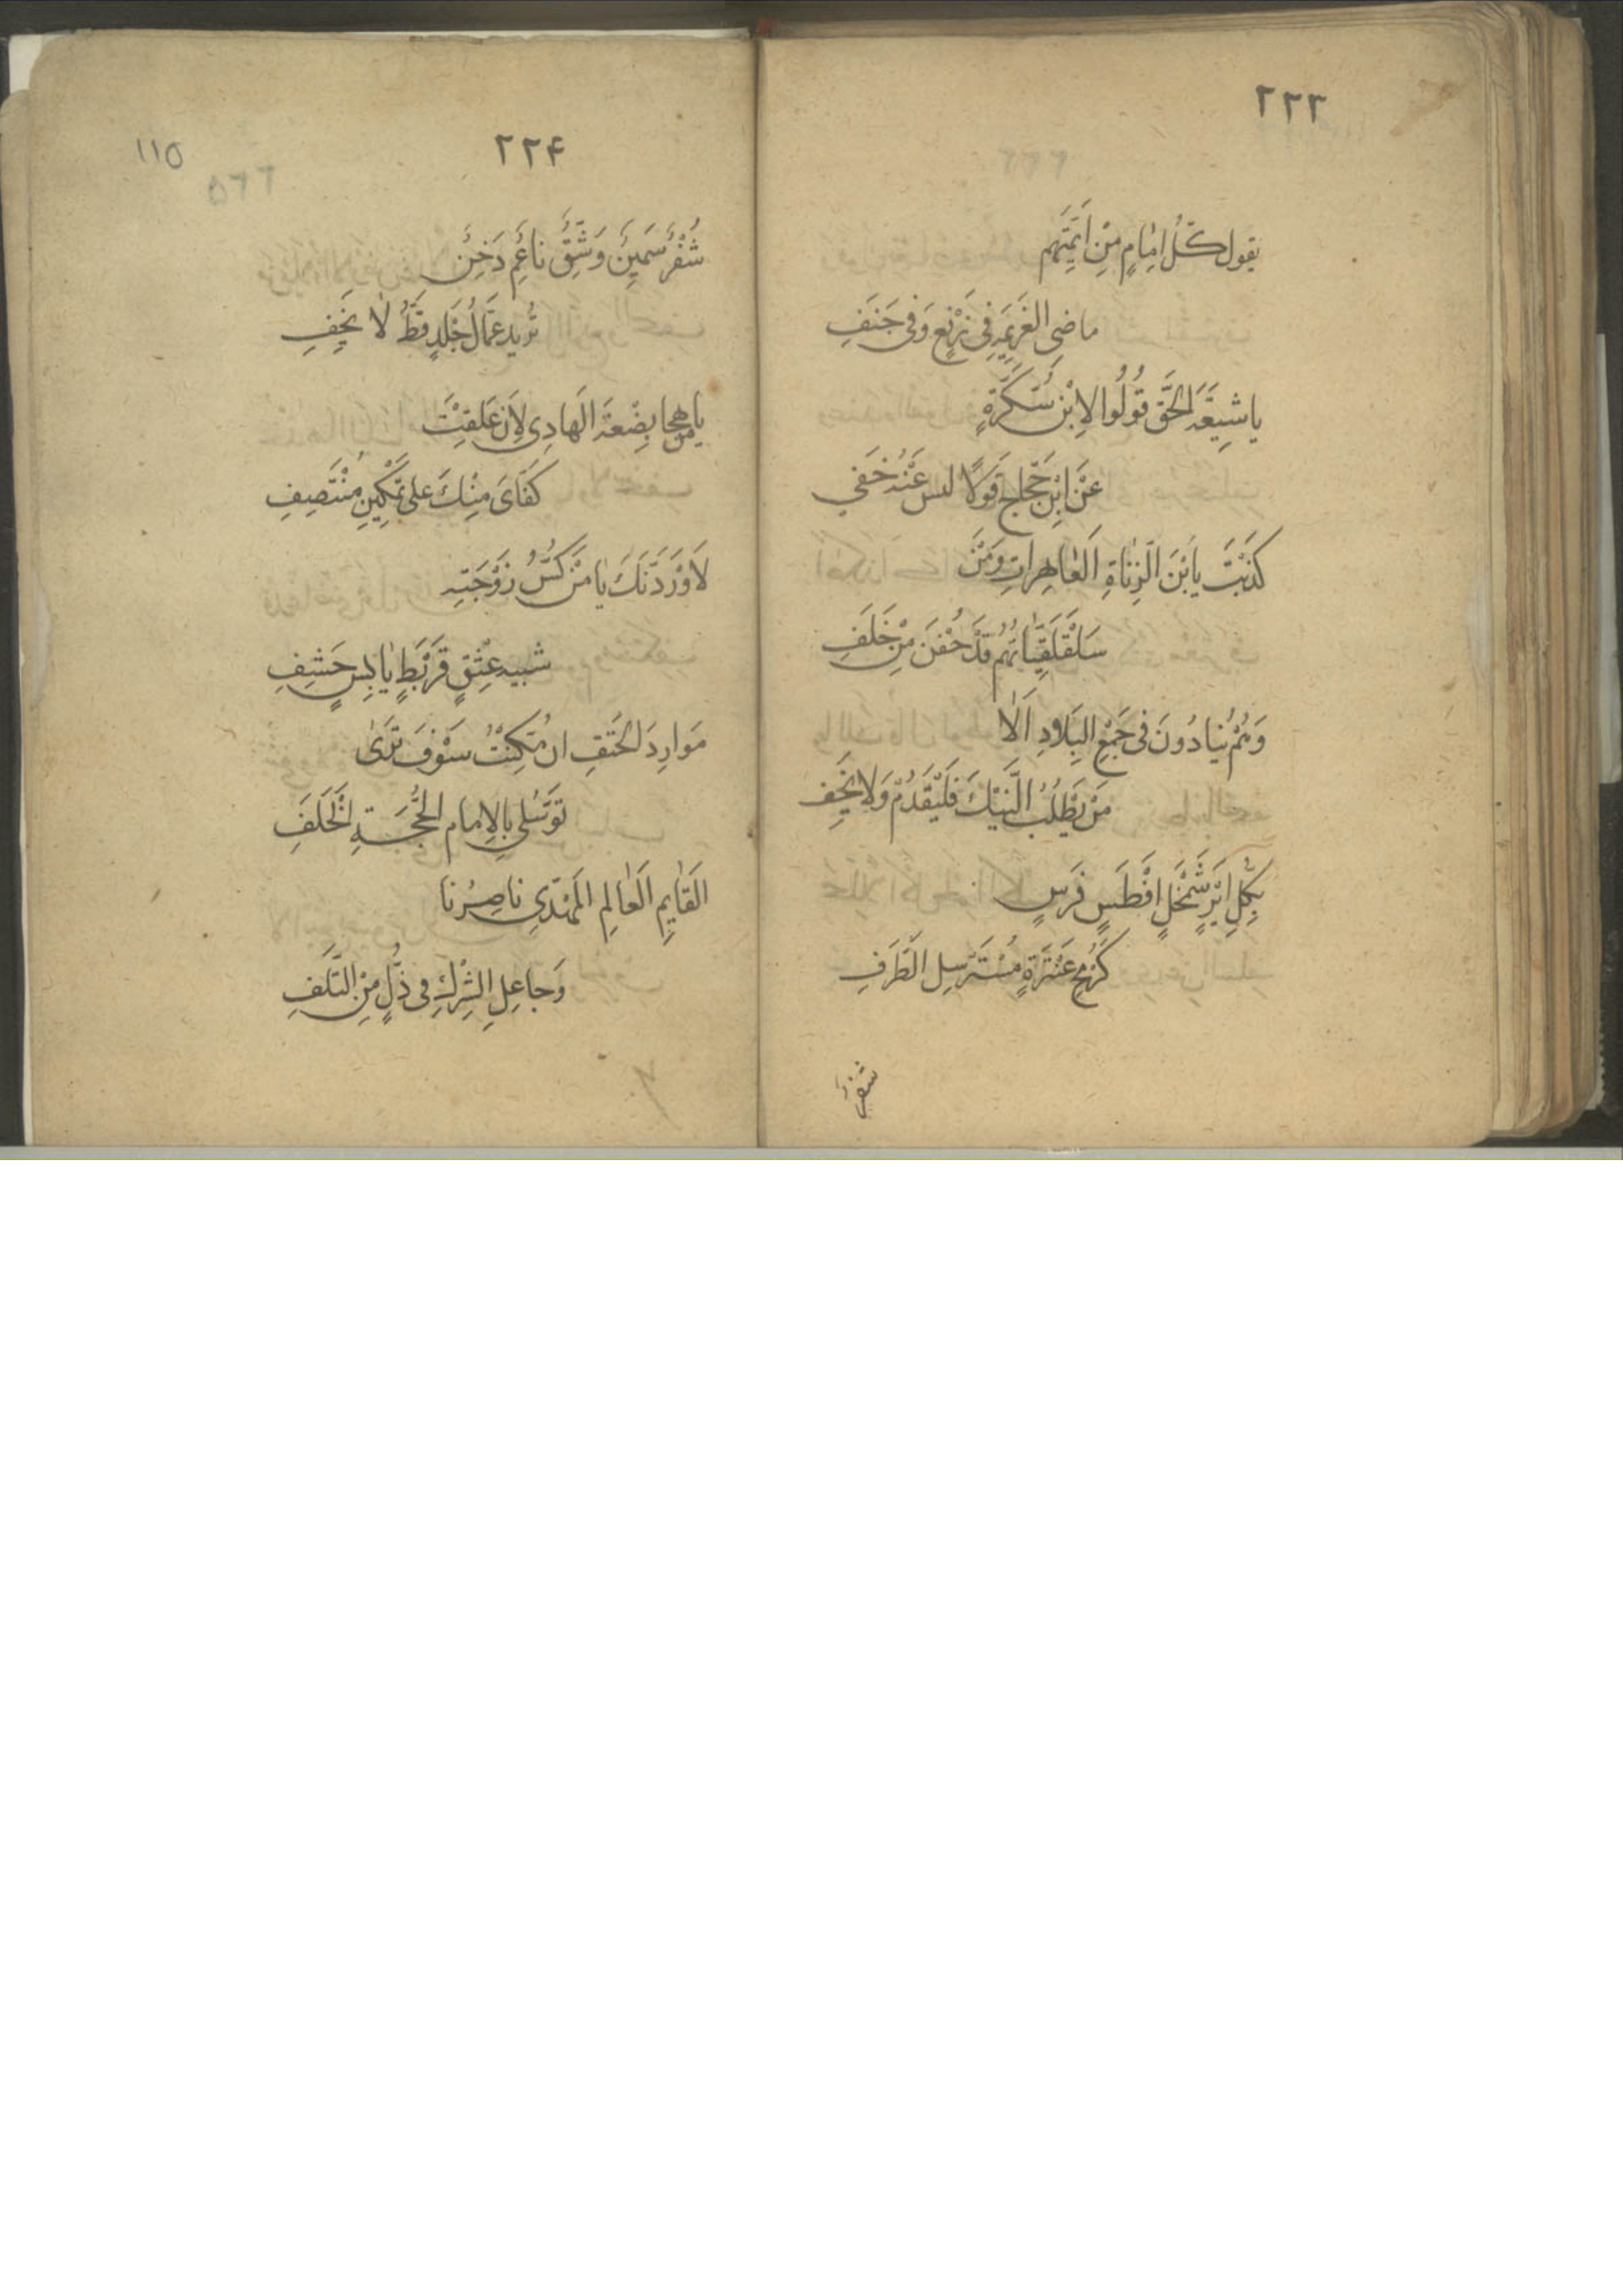 ٢٢٣
يقول كلُّ امِامٍ مِنْ اَئِمَّتِهِم
ماضى الغَرِيمَةِ فى نَزْنَعٍ وَفى جَنَفِ
ياشِيعَةَ الحَقِّ قُولُوا لاِبْن سُكَّرَةٍ
عَنْ ابْنِ حَجّاجِ قَوْلًا ليس عَنْهُ خَفي
كذَبْتَ يا بْنَ الزِناةِ العاهِراتِ وَمَنْ
سَلَقْلَقِيّاتُهُم قَدْ حُفْنَ مِنْ خَلَفِ
وَهُمْ يُنادُونَ فى جَمْعِ البِلادِ اَلا
مَنْ يَطْلُبُ النَيْكَ فَلْيَقْدُمْ وَلا يَخِفِ
بِكُلِّ اَيْرٍ شَمْخَلٍ افْطَسٍ فَرَسٍ
كَرُمْحِ عَنْتَرَةٍ مُسْتَرْسِلِ الطَرَفِ
شفرٌ
٢٢۴
١١٥
٢٢۵
شُفْرٌ سَمينٌ وَشَقٌّ ناعِم دَخِنٌ
تُريد عَمّالُ جَلدٍ قَطُّ لا يَخِفِ
يا من هجا بِضْعَةَ الهادِى لاَِن عَلقِتْ
كَفّاىَ مِنكَ على تمكينِ مُنْتَصِفِ
لَاَوْرَدَنَّكَ يا مَنْ كُسُّ زَوْجَتِهِ
شبيه عِثقٍ قَرْبَطٍ يابِسٍ حَشِفِ
مَوارِدَ الحَتفِ ان مُكِنْتُ سَوْفَ تَرىٰ
تَوَسُّلى بِالاِمام الحُجَّةِ الخَلَفِ
القايِمِ العالِمِ المَهْدّى ناصِرُنا
وَجاعِلِ الشِرْكِ فى ذُلٍّ مِنَ التَلَفِ